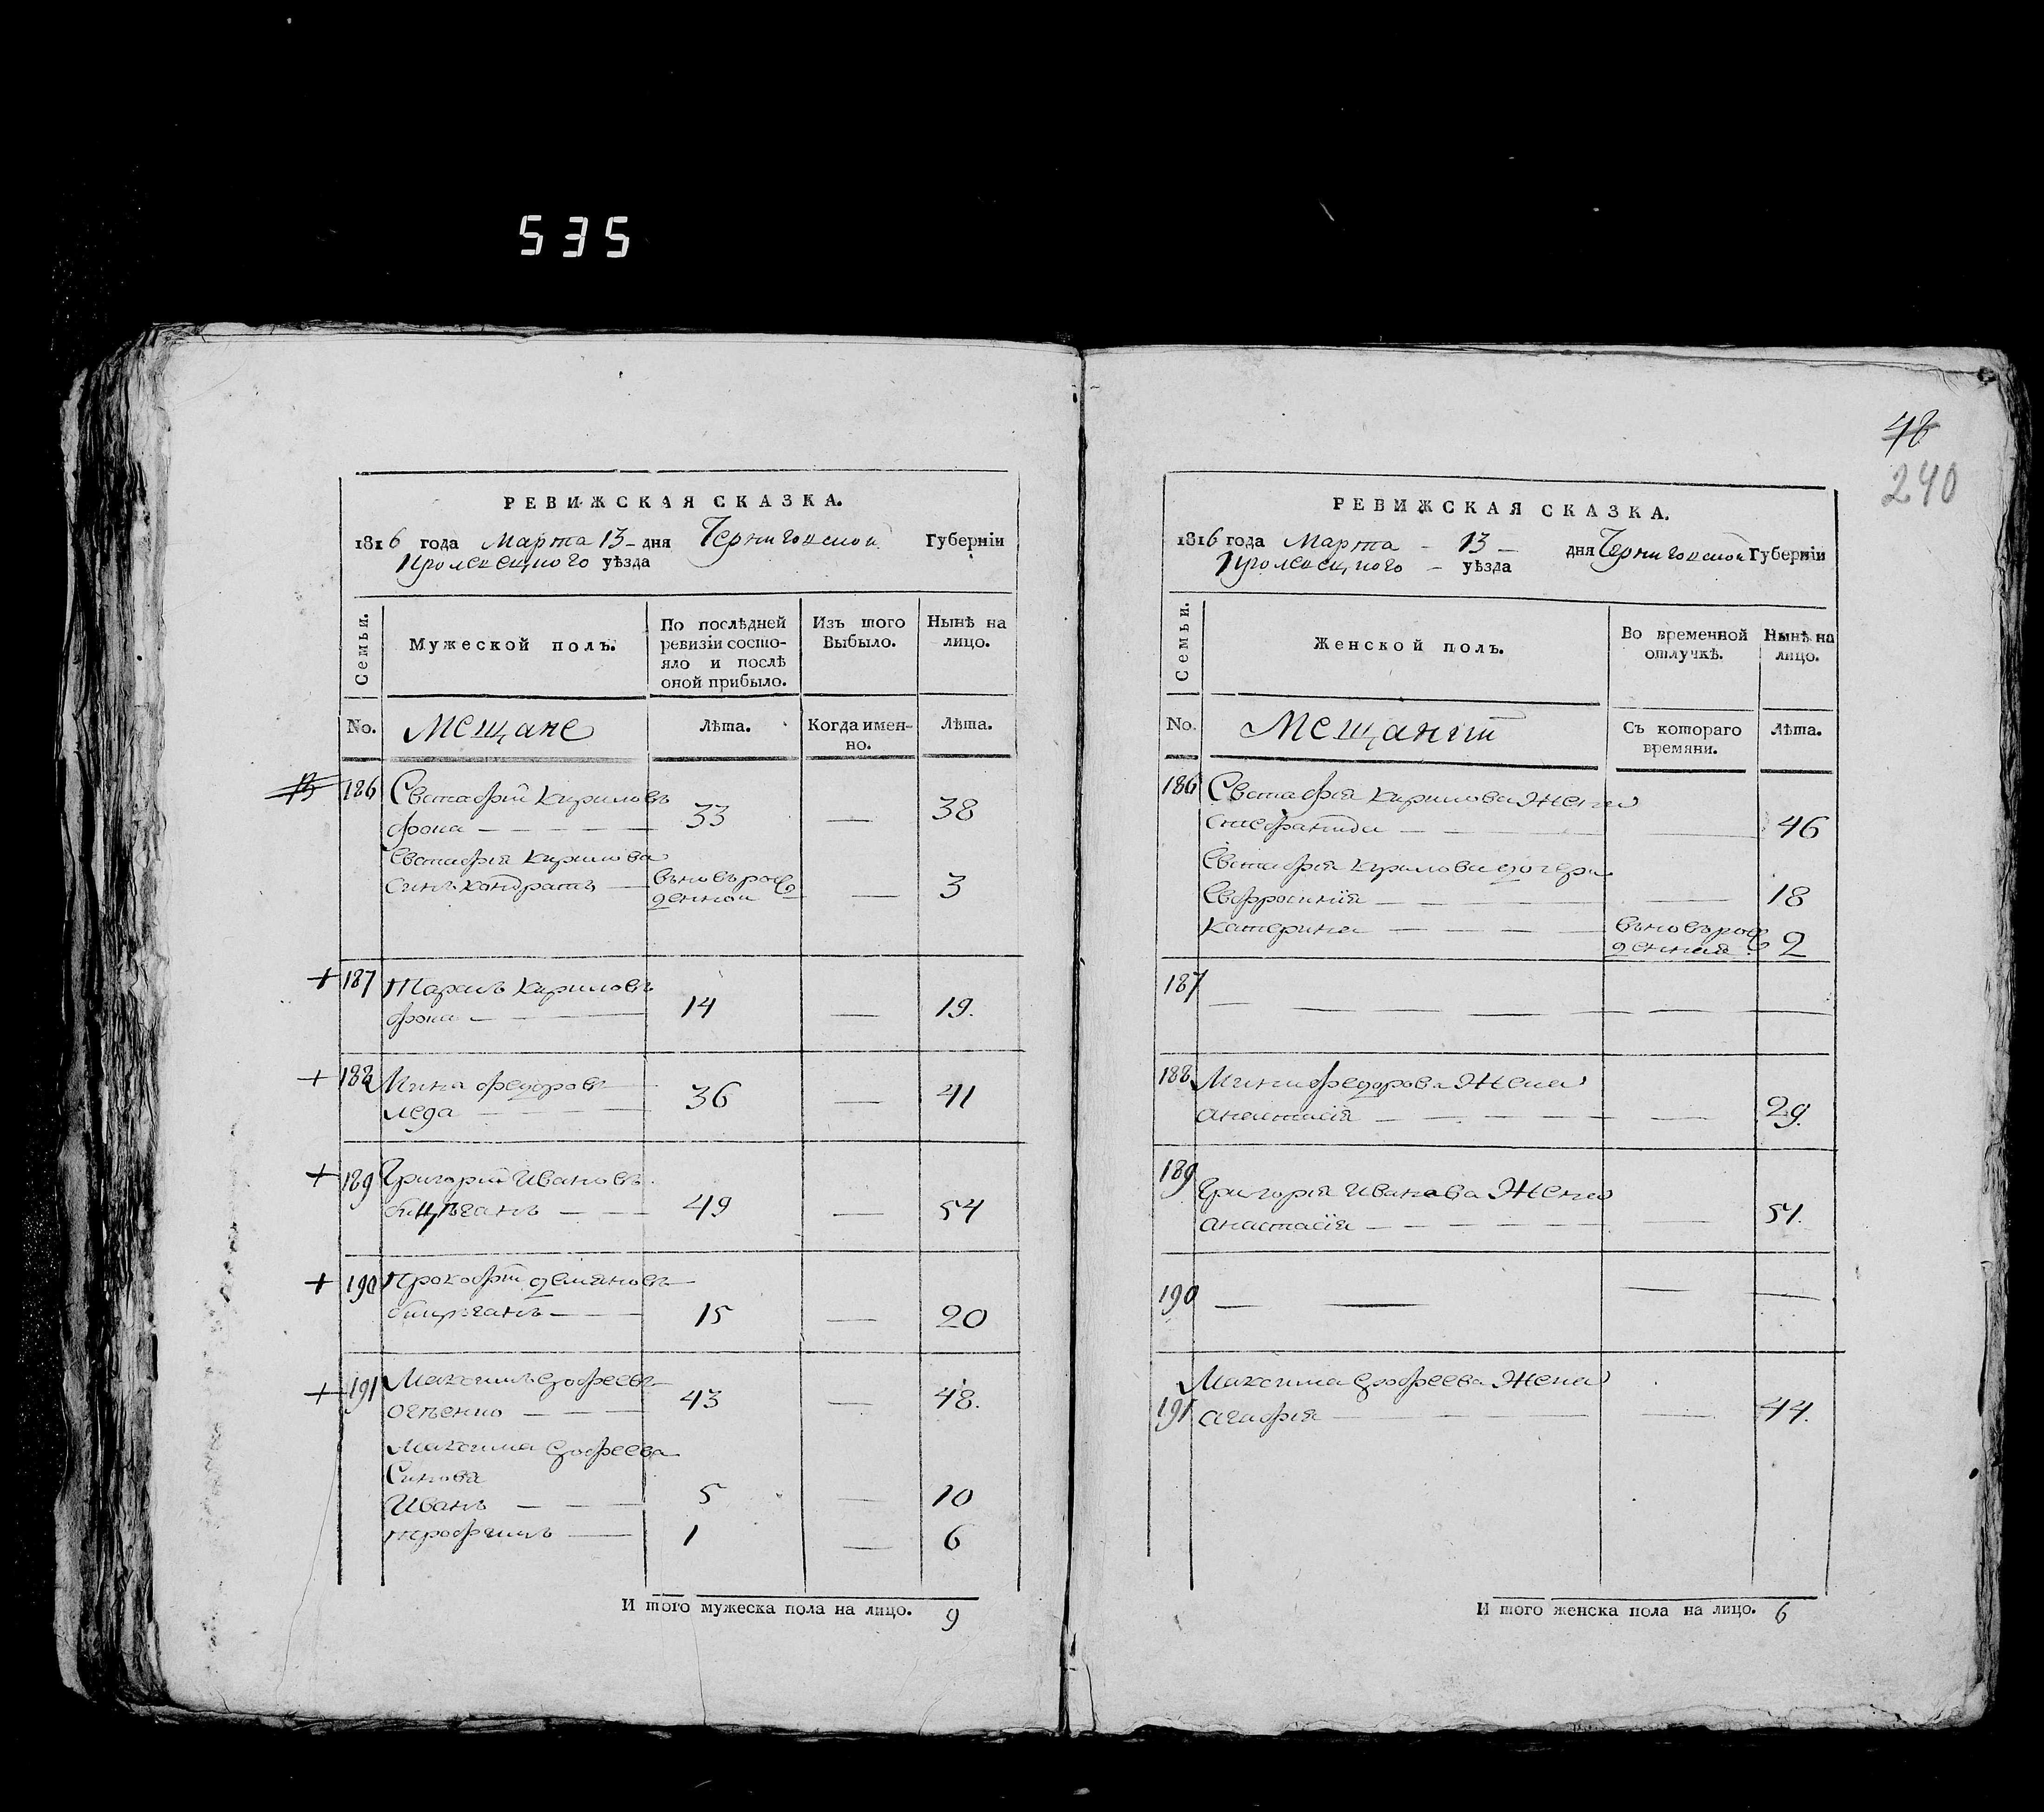 535
48
240
РЕВИЖСКАЯ СКАЗКА.
1816 года Марта 13 - дня Черниговской Губернїи
Кролевецкого уѣзда
Семьи.
Мужеской полъ.
По послѣдней
ревизїи состо-
яло и послѣ
оной прибыло.
Изъ того
Выбыло.
Нынѣ на
лицо.
No.
Мещане
Лѣта.
Когда имен-
но.
Лѣта.
186 Евстафїй Кириловъ
33 — 38
Евстафїя Кирилова
синъ Кондратъ — вьновърож
денной — 3
+ 187 Тарасъ Кириловъ
14 — 19.
+ 188 Мина Федоровъ
леда — 36 — 41
+ 189 Григорїй Ивановъ
49 — 54
+ 190 Прокофїй Демяновъ
15 — 20
+ 191 Максимъ Ерофеевъ
43 — 48.
Максима Ерофеева
Синовя
Иванъ — 5 — 10
Трофимъ — 1 — 6
И того мужеска пола на лицо. 9
РЕВИЖСКАЯ СКАЗКА.
1816 года Марта - 13 - дня Черниговской Губернїи
Кролевецкого - уѣзда
Семьи.
Женской полъ.
Во временной
отлучкѣ.
Нынѣ на
лицо.
No.
Съ котораго
времяни.
Лѣта.
186 Евстафїя Кирилова Жена
— 46
Евстафїя Кирилова дочери
Евфросинїя — 18
Катерина — вьновърож
денная 2
187 —
188 Мини Федорова Жена
Анастасїя — 29.
189 Григорїя Иванова Жена
Анастасїя — 51.
190 —
Максима Ерофеева Жена
191 Агафїя — 44.
И того женска пола на лицо. 6